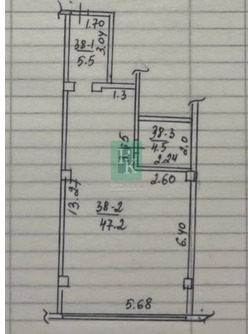 1.70
38-1
5.5
3.04
1.3
38-3
4.5
2.0
2.24
2.60
13.27
38-2
47.2
6.40
5.68